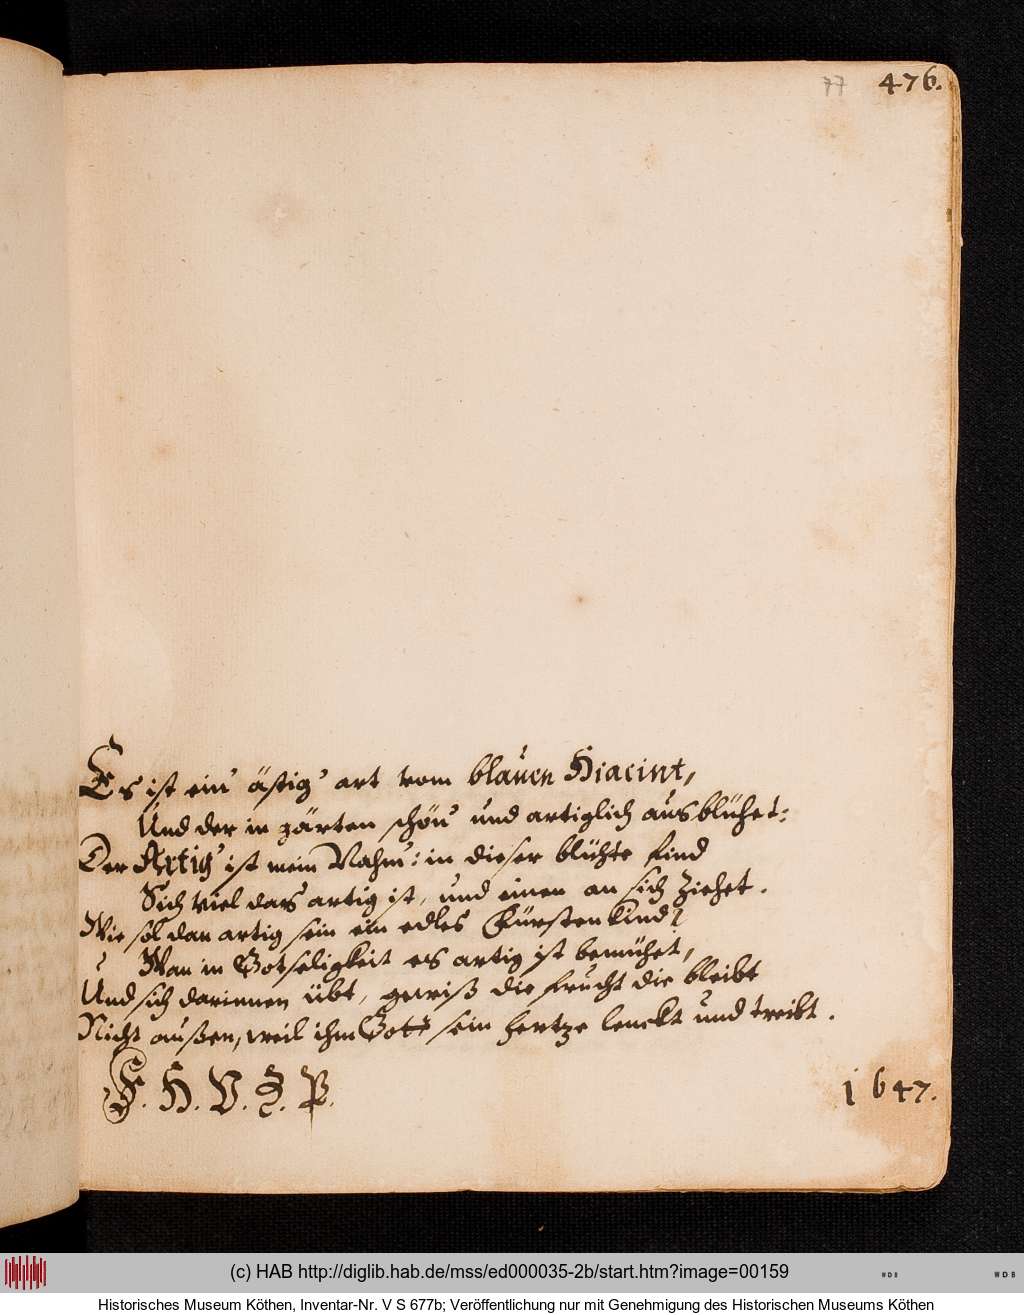 77 476.
Es ist ein' ästig' art vom blauen Hiacint,
Und der in gärten schön' und artiglich ausblühet:
Der Artig' ist mein Nahm': in dieser blühte find
Sich viel das artig ist, und einen an sich ziehet.
Wie sol dan artig sein ein edles Fürstenkind?
Wan in Gotseligkeit es artig ist bemühet,
Und sich darinnen übt, gewiß die frucht die bleibt
Nicht außen, weil ihm Gott sein hertze lenckt und treibt.
F. H. V. S. P.
1647.
(c) HAB http://diglib.hab.de/mss/ed000035-2b/start.htm?image=00159
WDB
WDB
Historisches Museum Köthen, Inventar-Nr. V S 677b; Veröffentlichung nur mit Genehmigung des Historischen Museums Köthen